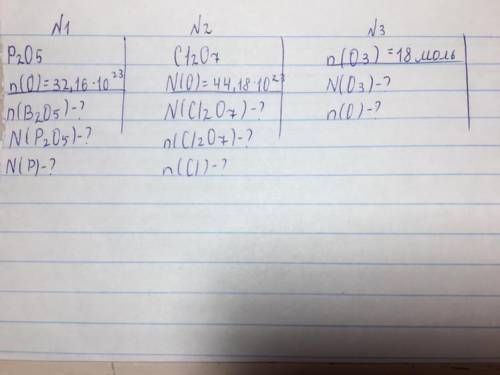 N1
P2O5
n(O)=32,16·10²³
n(B2O5)-?
N(P2O5)-?
N(P)-?
N2
Cl2O7
N(O)=44,18·10²³
N(Cl2O7)-?
n(Cl2O7)-?
n(Cl)-?
N3
n(O3)=18 моль
N(O3)-?
n(O)-?